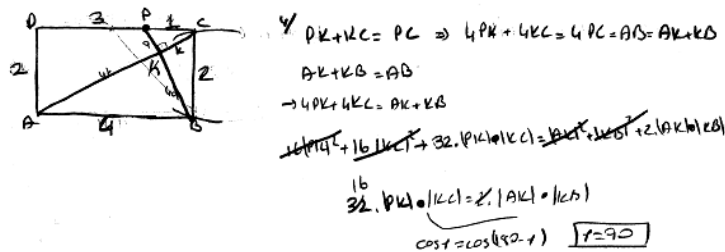 D 3 P 1 C
a k
2 K 2
4k 4a
A 4 B
4) PK+KC = PC ⇒ 4PK+4KC = 4PC = AB = AK+KB
AK+KB = AB
→ 4PK+4KC = AK+KB
16|PK|²+16|KC|²+32.|PK|•|KC| = |AK|²+|KB|²+2.|AK|•|KB|
16
32.|PK|•|KC| = 2.|AK|•|KB|